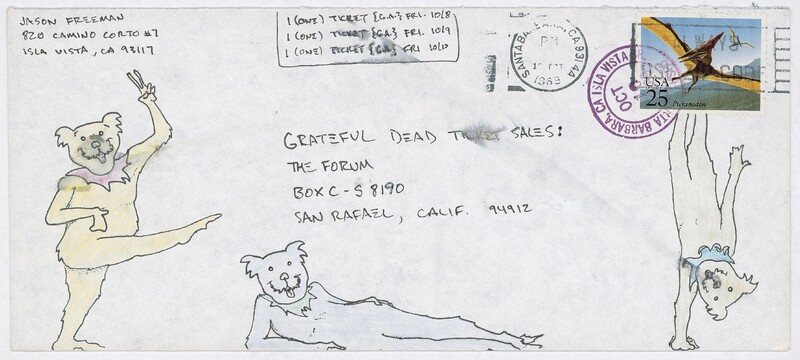 JASON FREEMAN
820 CAMINO CORTO #7
ISLA VISTA, CA 93117
1 (ONE) TICKET {G.A.} FRI. 10/8
1 (ONE) TICKET {G.A.} FRI. 10/9
1 (ONE) TICKET {G.A.} FRI. 10/10
SANTA BARBARA, CA 931
PM
OCT
1989
ALWAYS
CODE
ISLA VISTA
SANTA BARBARA, CA
OCT
USA
25 Pteranodon
GRATEFUL DEAD TICKET SALES:
THE FORUM
BOX C-S 8190
SAN RAFAEL, CALIF. 94912